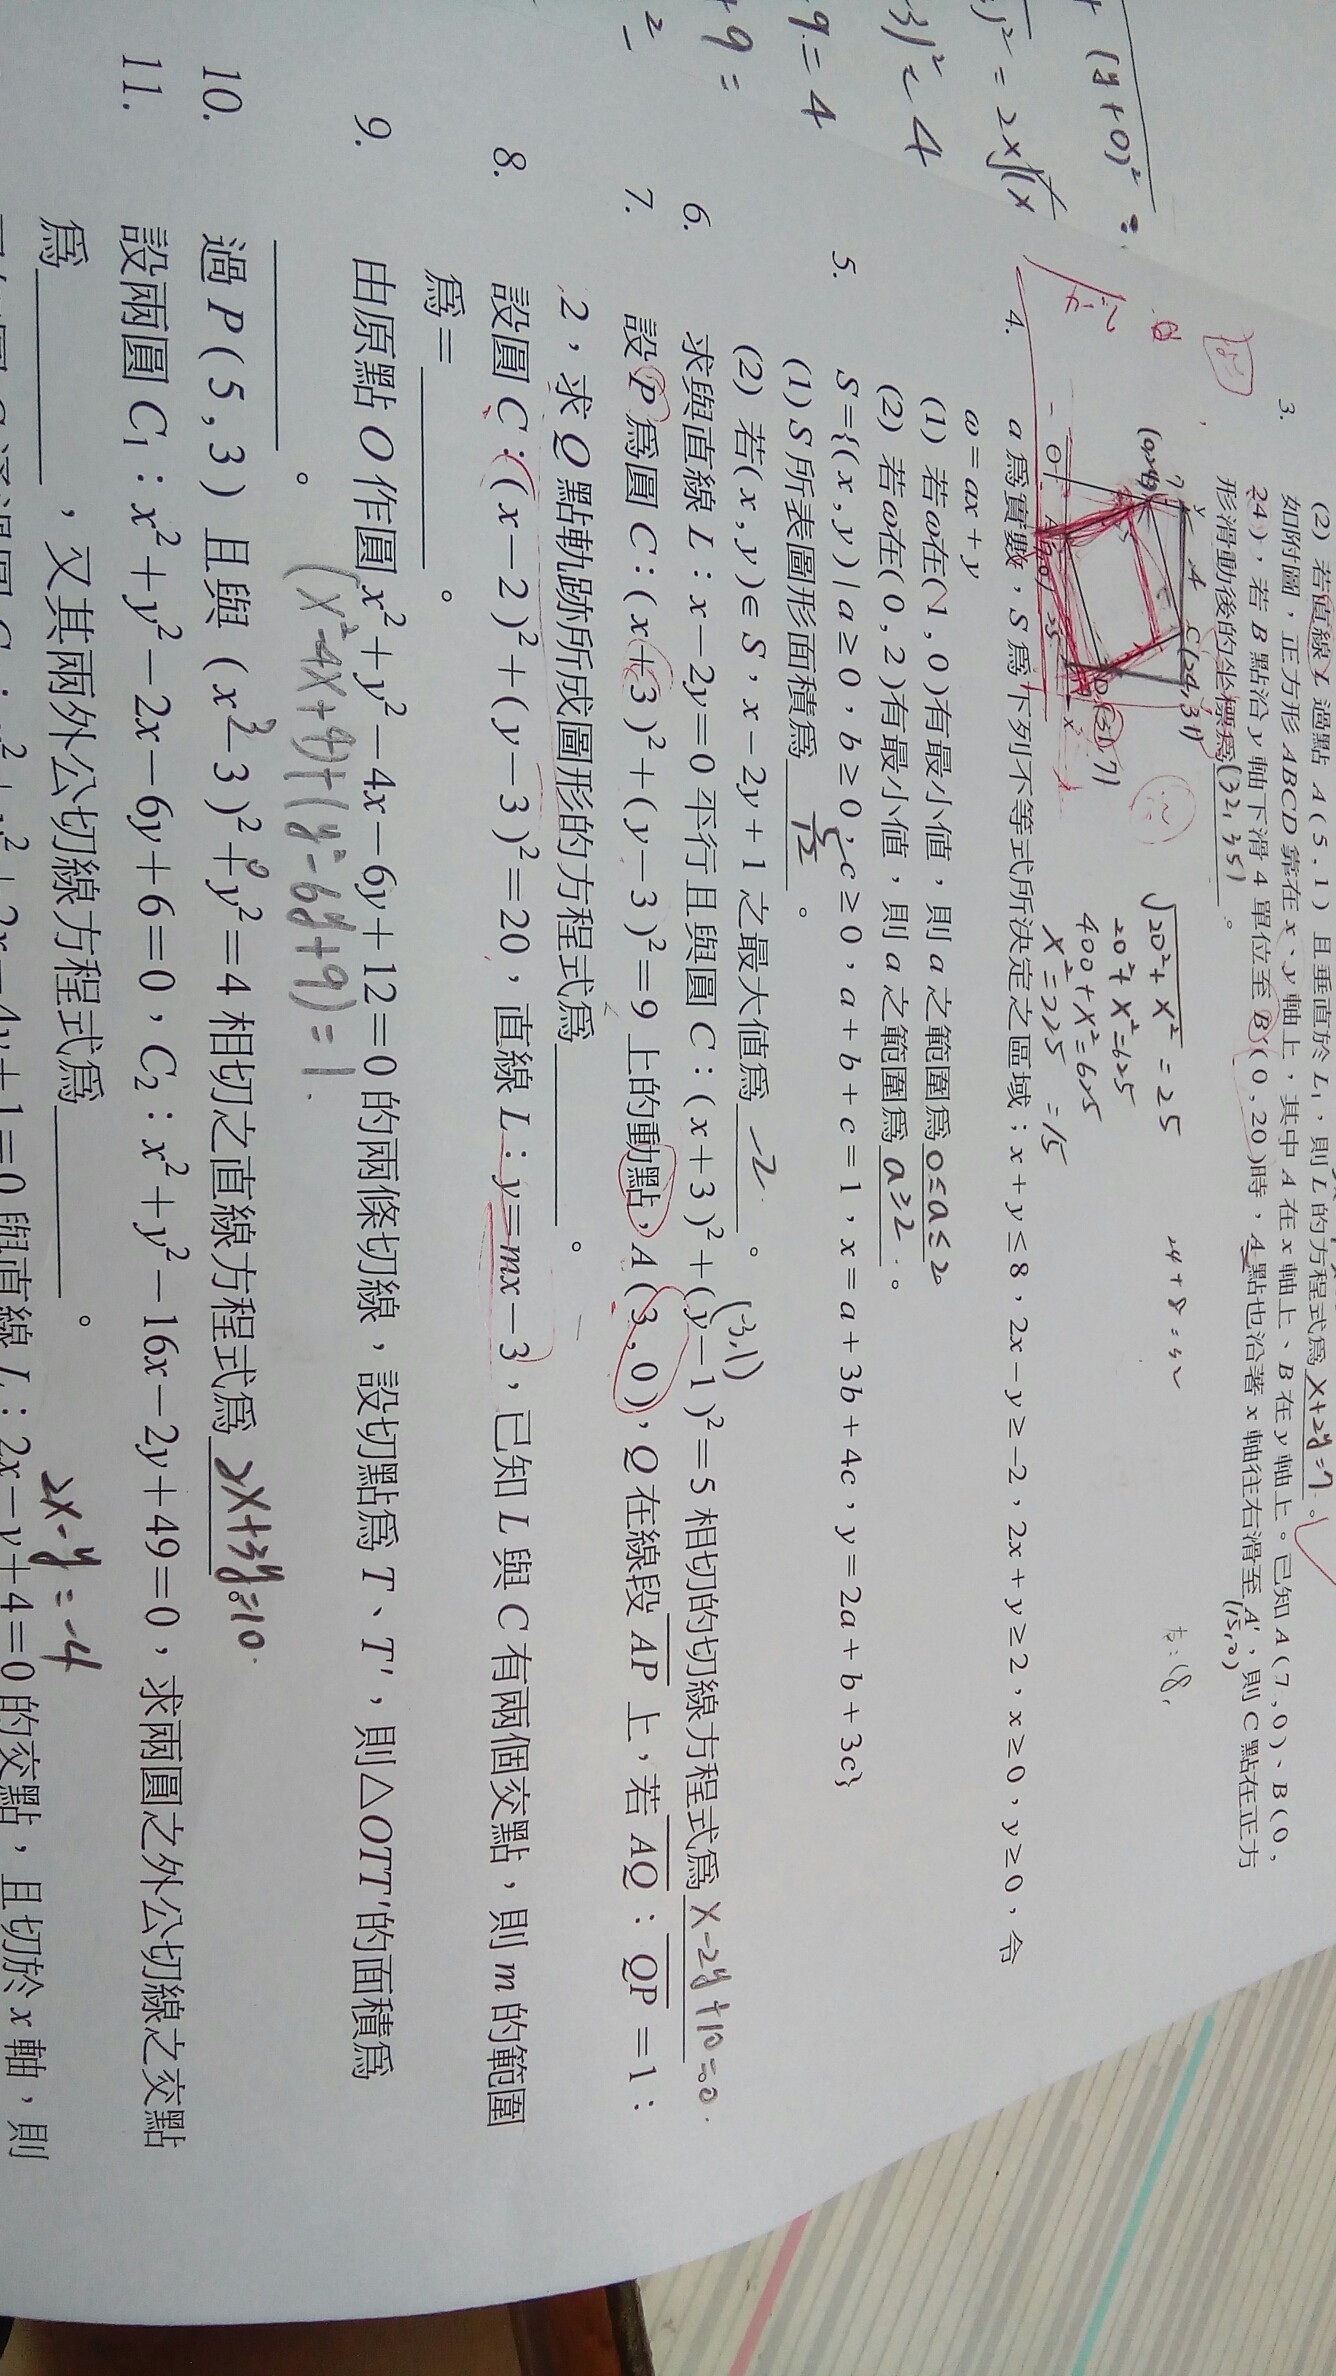 (2) 若直線 L 過點 A ( 5 , 1 ) 且垂直於 L₁，則 L 的方程式為 x+2y=7。
3. 如附圖，正方形 ABCD 靠在 x、y 軸上，其中 A 在 x 軸上、B 在 y 軸上。已知 A ( 7 , 0 )、B ( 0 ,
24 )，若 B 點沿 y 軸下滑 4 單位至 B'( 0 , 20 )時，A 點也沿著 x 軸往右滑至 A'，則 C 點在正方
(15,0)
形滑動後的坐標為(32, 35)。
y
C(24,31)
(31,7)
x
O
√20²+x² = 25
20²+x²=625
400+x²=625
x²=225 =15
24+8=32
4. a 為實數，S 為下列不等式所決定之區域；x + y ≤ 8，2x − y ≥ −2，2x + y ≥ 2，x ≥ 0，y ≥ 0，令
ω = ax + y
(1) 若ω在( 1 , 0 )有最小值，則 a 之範圍為 0≤a≤2
(2) 若ω在( 0 , 2 )有最小值，則 a 之範圍為 a≥2。
5. S = {( x , y ) | a ≥ 0，b ≥ 0，c ≥ 0，a + b + c = 1，x = a + 3b + 4c，y = 2a + b + 3c}
(1) S 所表圖形面積為 5/2。
(2) 若( x , y ) ∈ S，x − 2y + 1 之最大值為 -2。
(-3,1)
6. 求與直線 L：x − 2y = 0 平行且與圓 C：( x + 3 )² + ( y − 1 )² = 5 相切的切線方程式為 x-2y+10=0.
7. 設 P 為圓 C：( x + 3 )² + ( y − 3 )² = 9 上的動點，A ( 3 , 0 )，Q 在線段 AP 上，若 AQ：QP = 1：
2，求 Q 點軌跡所成圖形的方程式為＿＿＿。
8. 設圓 C：( x − 2 )² + ( y − 3 )² = 20，直線 L：y = mx − 3，已知 L 與 C 有兩個交點，則 m 的範圍
為 = ＿＿＿。
9. 由原點 O 作圓 x² + y² − 4x − 6y + 12 = 0 的兩條切線，設切點為 T、T'，則△OTT'的面積為
＿＿＿。
(x²-4x+4)+(y²-6y+9)=1.
10. 過 P ( 5 , 3 ) 且與 ( x − 3 )² + y² = 4 相切之直線方程式為 2x+3y=10.
11. 設兩圓 C₁：x² + y² − 2x − 6y + 6 = 0，C₂：x² + y² − 16x − 2y + 49 = 0，求兩圓之外公切線之交點
為＿＿＿，又其兩外公切線方程式為＿＿＿。
2x-y=-4
x² + 2x − 4y + 1 = 0 與直線 L：2x − y + 4 = 0 的交點，且切於 x 軸，則
(y+0)² =
= 2√(x
-3)² = 4
9=4
+9=